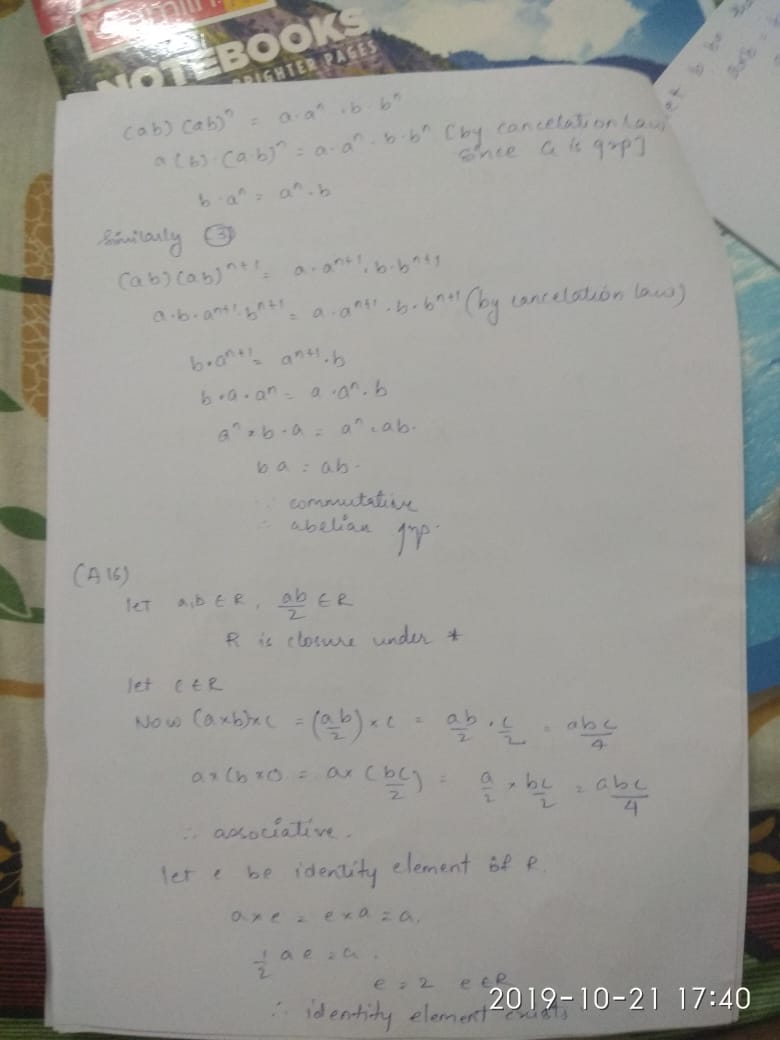 NOTEBOOKS
BRIGHTER PAGES
(ab) (ab)ⁿ = a·aⁿ·b·bⁿ
a(b)·(a·b)ⁿ = a·aⁿ·b·bⁿ [by cancelation law
since G is grp]
b·aⁿ = aⁿ·b
Similarly ③
(ab)(ab)ⁿ⁺¹ = a·aⁿ⁺¹·b·bⁿ⁺¹
a·b·aⁿ⁺¹·bⁿ⁺¹ = a·aⁿ⁺¹·b·bⁿ⁺¹ (by cancelation law)
b·aⁿ⁺¹ = aⁿ⁺¹·b
b·a·aⁿ = a·aⁿ·b
aⁿ×b·a = aⁿ·ab·
ba = ab·
∴ commutative
∴ abelian grp·
(A16)
let a,b ∈ R, ab/2 ∈ R
R is closure under *
let c ∈ R
Now (a×b)×c = (ab/2)×c = ab/2 · c/2 = abc/4
a×(b×c) = a×(bc/2) = a/2 × bc/2 = abc/4
∴ associative.
let e be identity element of R.
a×e = e×a = a.
1/2 ae = a.
e = 2 e∈R
∴ identity element exists
2019-10-21 17:40